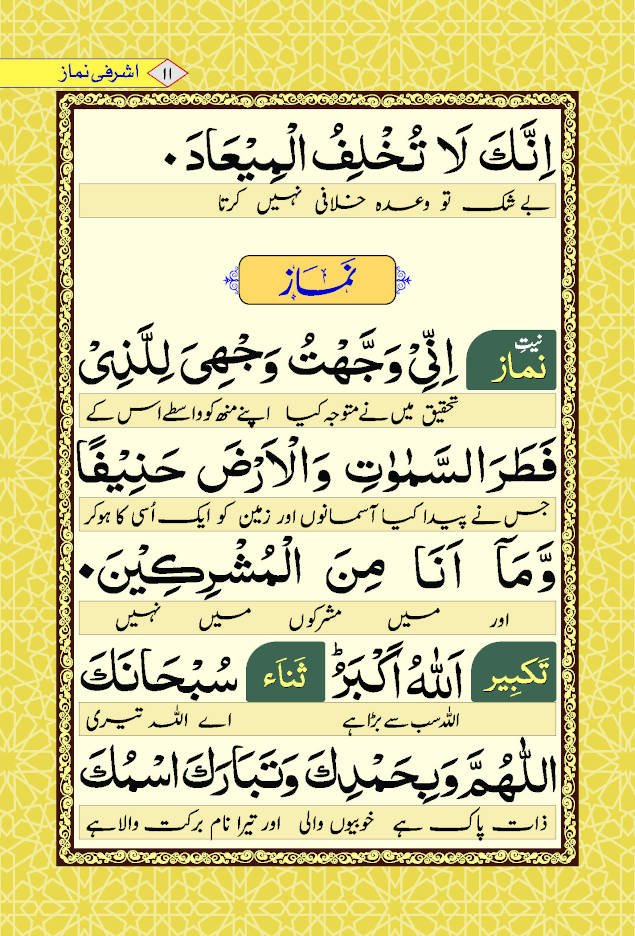 ۱۱ اشرفی نماز
اِنَّكَ لَا تُخْلِفُ الْمِيْعَادَ۰
بے شک تو وعدہ خلافی نہیں کرتا
نَمَاز
نیتِ نماز اِنِّيْ وَجَّهْتُ وَجْهِيَ لِلَّذِيْ
تحقیق میں نے متوجہ کیا اپنے منھ کو واسطے اس کے
فَطَرَ السَّمٰوٰتِ وَالْاَرْضَ حَنِيْفًا
جس نے پیدا کیا آسمانوں اور زمین کو ایک اُسی کا ہوکر
وَّمَآ اَنَا مِنَ الْمُشْرِكِيْنَ۰
اور میں مشرکوں میں نہیں
تَکبِیر اَللّٰهُ اَكْبَرُ ؕ ثَنَاء سُبْحَانَكَ
اللہ سب سے بڑا ہے اے اللہ تیری
اللّٰهُمَّ وَبِحَمْدِكَ وَتَبَارَكَ اسْمُكَ
ذات پاک ہے خوبیوں والی اور تیرا نام برکت والا ہے